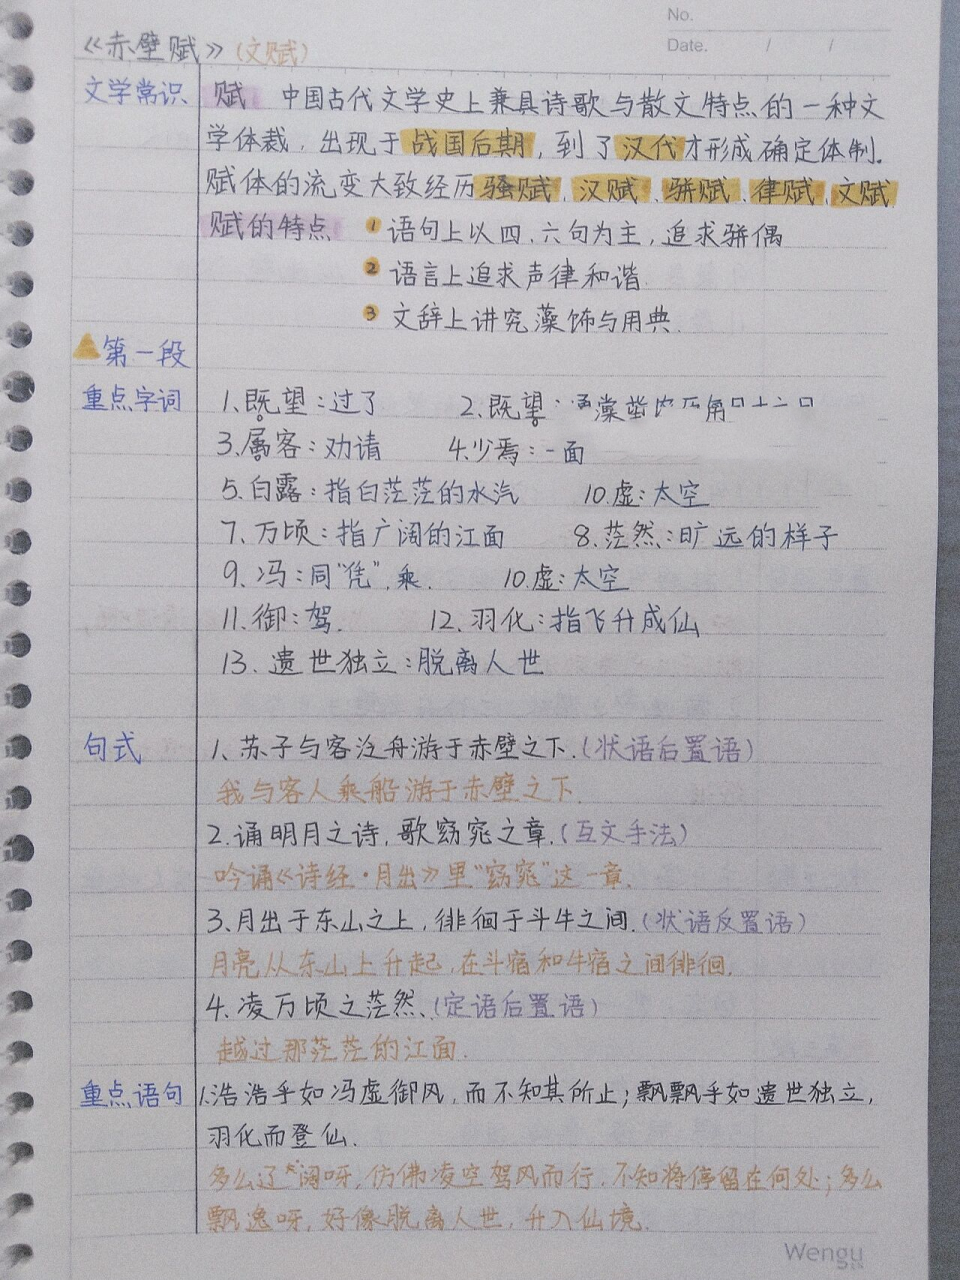 No.
Date. / /
《赤壁赋》(文赋)
文学常识 赋 中国古代文学史上兼具诗歌与散文特点的一种文
学体裁，出现于战国后期，到了汉代才形成确定体制.
赋体的流变大致经历骚赋、汉赋、骈赋、律赋、文赋
赋的特点 1 语句上以四、六句为主，追求骈偶
2 语言上追求声律和谐.
3 文辞上讲究藻饰与用典.
第一段
重点字词 1、既望：过了 2、既望：
3.属客：劝请 4.少焉：一面
5.白露：指白茫茫的水汽 10.虚：太空
7、万顷：指广阔的江面 8.茫然：旷远的样子
9、冯：同"凭"，乘. 10.虚：太空
11.御：驾. 12、羽化：指飞升成仙
13. 遗世独立：脱离人世
句式 1、苏子与客泛舟游于赤壁之下.(状语后置语)
我与客人乘船游于赤壁之下.
2.诵明月之诗，歌窈窕之章.(互文手法)
吟诵《诗经·月出》里"窈窕"这一章.
3、月出于东山之上，徘徊于斗牛之间.(状语反置语)
月亮从东山上升起，在斗宿和牛宿之间徘徊.
4.凌万顷之茫然、(定语后置语)
越过那茫茫的江面.
重点语句 1.浩浩乎如冯虚御风，而不知其所止；飘飘乎如遗世独立，
羽化而登仙.
多么辽阔呀，仿佛凌空驾风而行，不知将停留在何处；多么
飘逸呀，好像脱离人世，升入仙境.
Wengu